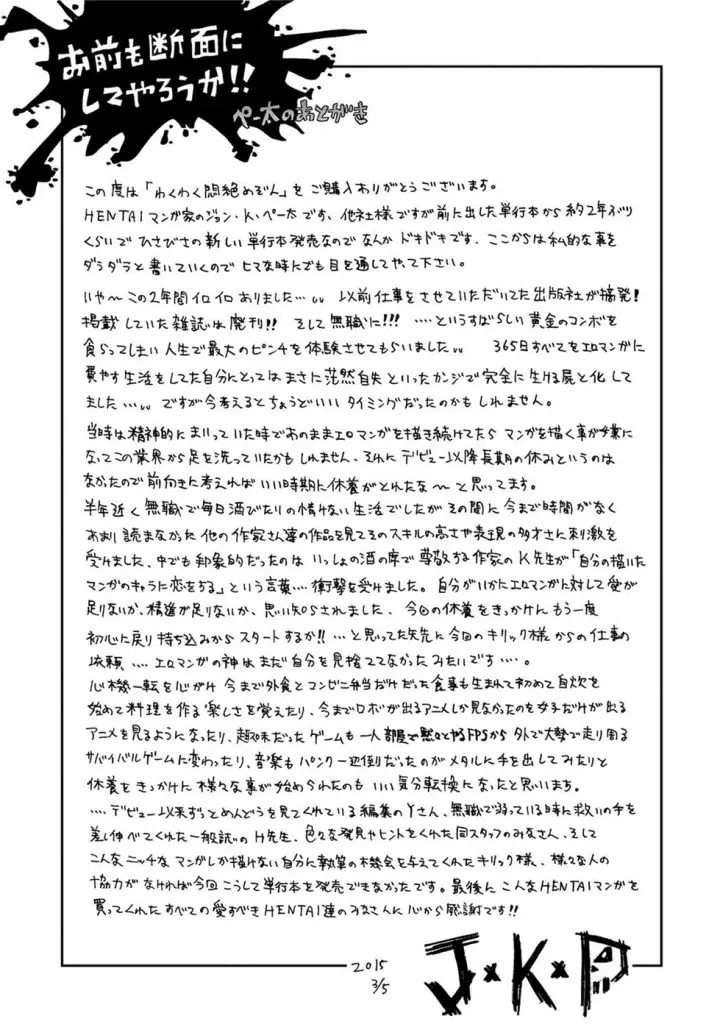 お前も断面に
してやろうか!!
ペー太のあとがき
この度は「わくわく悶絶めぞん」をご購入ありがとうございます。
HENTAIマンガ家のジョン・K・ペー太です、他社様ですが前に出した単行本から約2年ぶり
くらいでひさびさの新しい単行本発売なのでなんかドキドキです、ここからは私的な事を
ダラダラと書いていくのでヒマな時にでも目を通してやって下さい。
いや〜この2年間イロイロありました…、、以前仕事をさせていただいてた出版社が摘発!
掲載していた雑誌は廃刊!! そして無職に!!! ‥‥というすばらしい黄金のコンボを
食らってしまい人生で最大のピンチを体験させてもらいました、、 365日すべてをエロマンガに
費やす生活をしてた自分にとってはまさに茫然自失といったカンジで完全に生ける屍と化して
ました…、、ですが今考えるとちょうどいいタイミングだったのかもしれません。
当時は精神的にまいっていた時であのままエロマンガを描き続けてたらマンガを描く事が嫌に
なってこの業界から足を洗っていたかもしれません、それにデビュー以降長期の休みというのは
なかったので前向きに考えればいい時期に休養がとれたな〜と思ってます。
半年近く無職で毎日酒びたりの情けない生活でしたがその間に今まで時間がなく
あまり読まなかった他の作家さん達の作品を見てそのスキルの高さや表現の多才さに刺激を
受けました、中でも印象的だったのはいっしょの酒の席で尊敬する作家のK先生が「自分の描いた
マンガのキャラに恋をする」という言葉‥‥衝撃を受けました。自分がいかにエロマンガに対して愛が
足りないか、精進が足りないか、思い知らされました、今回の休養をきっかけにもう一度
初心に戻り持ち込みからスタートするか!!…と思ってた矢先に今回のキリック様からの仕事の
依頼‥‥エロマンガの神はまだ自分を見捨ててなかったみたいです‥‥。
心機一転を心がけ今まで外食とコンビニ弁当だけだった食事も生まれて初めて自炊を
始めて料理を作る楽しさを覚えたり、今までロボが出るアニメしか見なかったのを女子だけが出る
アニメを見るようになったり、趣味だったゲームも一人部屋で黙々とやるFPSから外で大勢で走り回る
サバイバルゲームに変わったり、音楽もパンク一辺倒だったのがメタルに手を出してみたりと
休養をきっかけに様々な事が始められたのもいい気分転換になったと思います。
‥‥デビュー以来ずっとめんどうを見てくれている編集のYさん、無職で弱っている時に救いの手を
差し伸べてくれた一般誌のH先生、色々な発見やヒントをくれた同スタッフのみなさん、そして
こんなニッチなマンガしか描けない自分に執筆の機会を与えてくれたキリック様、様々な人の
協力がなければ今回こうして単行本を発売できなかったです。最後にこんなHENTAIマンガを
買ってくれたすべての愛すべきHENTAI達のみなさんに心から感謝です!!
2015
3/5
J×K×P